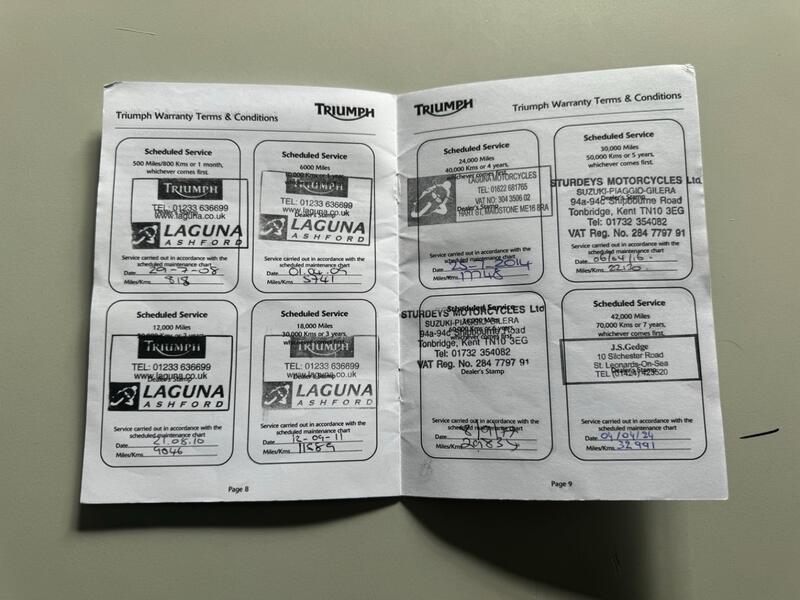 Triumph Warranty Terms & Conditions
TRIUMPH
Scheduled Service
500 Miles/800 Kms or 1 month,
whichever comes first.
TRIUMPH
TEL: 01233 636699
www.laguna.co.uk
LAGUNA
ASHFORD
Service carried out in accordance with the
scheduled maintenance chart
Date 29-7-08
Miles/Kms 818
Scheduled Service
6000 Miles
whichever comes first.
TRIUMPH
TEL: 01233 636699
www.laguna.co.uk
Dealer's Stamp
LAGUNA
ASHFORD
Service carried out in accordance with the
scheduled maintenance chart
Date 01.04.09
Miles/Kms 5741
Scheduled Service
12,000 Miles
TRIUMPH
TEL: 01233 636699
www.laguna.co.uk
Dealer's Stamp
LAGUNA
ASHFORD
Service carried out in accordance with the
scheduled maintenance chart
Date 21.08.10
Miles/Kms 9046
Scheduled Service
18,000 Miles
30,000 Kms or 3 years,
whichever comes first.
TRIUMPH
TEL: 01233 636699
www.laguna.co.uk
Dealer's Stamp
LAGUNA
ASHFORD
Service carried out in accordance with the
scheduled maintenance chart
Date 12-09-11
Miles/Kms 11589
Page 8
TRIUMPH
Triumph Warranty Terms & Conditions
Scheduled Service
24,000 Miles
40,000 Kms or 4 years,
whichever comes first.
LAGUNA MOTORCYCLES
TEL: 01622 681765
VAT NO: 304 3506 02
Dealer's Stamp
HART ST. MAIDSTONE ME16 8RA
Service carried out in accordance with the
scheduled maintenance chart
Date
Miles/Kms 17748
Scheduled Service
30,000 Miles
50,000 Kms or 5 years,
whichever comes first.
STURDEYS MOTORCYCLES Ltd
SUZUKI-PIAGGIO-GILERA
94a-94c Shipbourne Road
Tonbridge, Kent TN10 3EG
Tel: 01732 354082
VAT Reg. No. 284 7797 91
Service carried out in accordance with the
scheduled maintenance chart
Date 06/04/16
Miles/Kms 22120
Scheduled Service
STURDEYS MOTORCYCLES Ltd
SUZUKI-PIAGGIO-GILERA
94a-94c Shipbourne Road
Tonbridge, Kent TN10 3EG
Tel: 01732 354082
VAT Reg. No. 284 7797 91
Dealer's Stamp
Service carried out in accordance with the
scheduled maintenance chart
Date
Miles/Kms
Scheduled Service
42,000 Miles
70,000 Kms or 7 years,
whichever comes first.
J.S.Gedge
10 Silchester Road
St. Leonards-On-Sea
TEL (01424) 423520
Service carried out in accordance with the
scheduled maintenance chart
Date 04/04/24
Miles/Kms 32991
Page 9